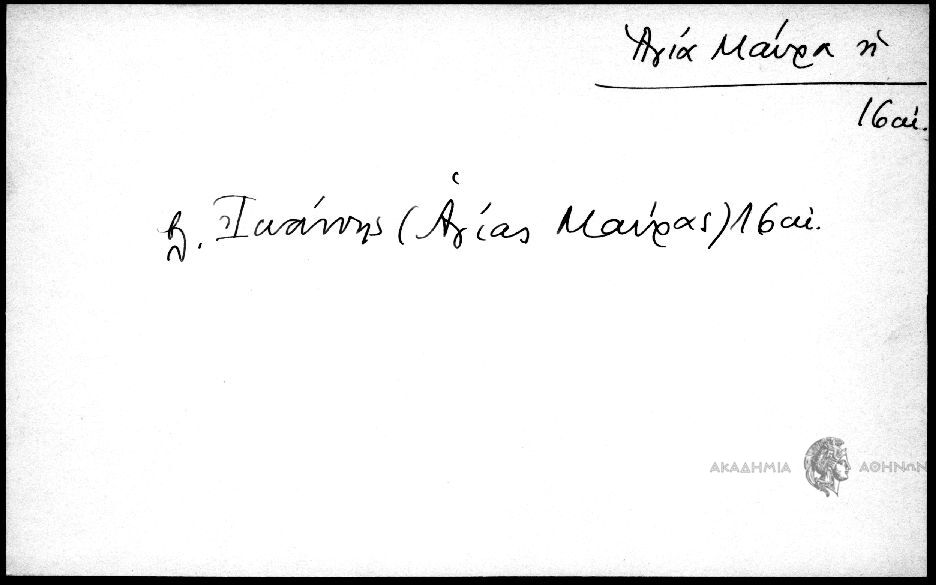 Ἁγία Μαύρα ἡ
16 αἰ.
βλ. Ἰωάννης (Ἁγίας Μαύρας) 16 αἰ.
ΑΚΑΔΗΜΙΑ ΑΘΗΝΩΝ